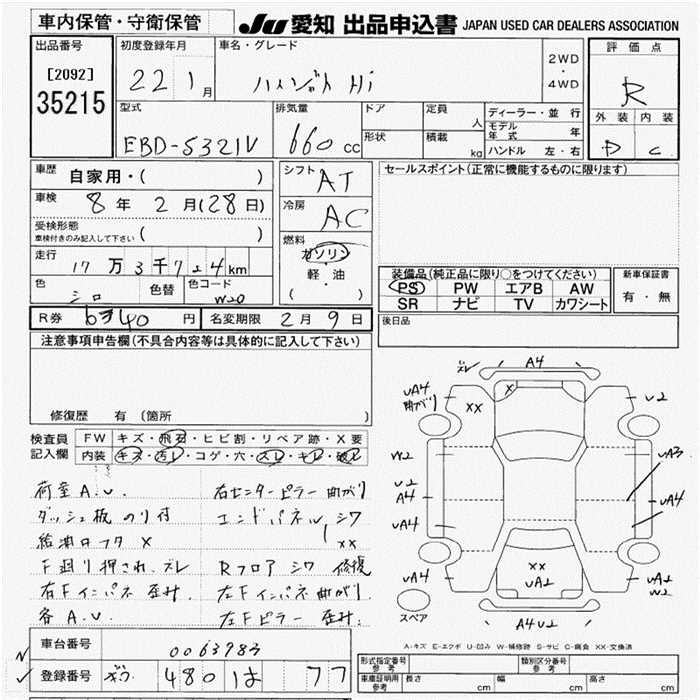 車内保管・守衛保管
JU 愛知 出品申込書 JAPAN USED CAR DEALERS ASSOCIATION
出品番号
[2092]
35215
初度登録年月
22 1月
車名・グレード
ハイゼット Hi
2WD
・
4WD
評価点
R
外装 内装
D C
型式
EBD-S321V
排気量
660 cc
ドア
定員
人
形状
積載
kg
ディーラー・並行
モデル年式 年
ハンドル 左・右
車歴
自家用・( )
車検
8年 2月(28日)
受検形態
車検付きのみ記入して下さい ( )
走行
17万3千724km
色
シロ
色替
色コード
W20
シフト
AT
冷房
AC
燃料
ガソリン
軽・油
( ・ )
セールスポイント(正常に機能するものに限ります)
装備品(純正品に限り○をつけてください)
PS PW エアB AW
SR ナビ TV カワシート
新車保証書
有・無
R券 円
名変期限 2月9日
後日品
注意事項申告欄(不具合内容等は具体的に記入して下さい)
修復歴 有 (箇所 )
検査員記入欄
FW キズ・飛石・ヒビ割・リペア跡・X要
内装 キズ・汚レ・コゲ・穴・スレ・キレ・破レ
荷室A.U. 右センターピラー曲がり
ダッシュ板のり付 エンドパネル シワ
給油口フタX XX
F廻り押され、ズレ Rフロアシワ修復
右Fインパネ歪み. 左Fインパネ曲がり.
各A.U. 左Fピラー歪み.
車台番号
0063983
登録番号
480 は 77
ズレ
A4
UA4
曲がり
XX
X
U2
W2
UA3
U2
A4
UA4
UA4
UA4
XX
UA2
UA4
UA2
W2
スペア
A4U2
A-キズ E-エクボ U-凹み W-補修跡 S-サビ C-腐食 XX-交換済
形式指定番号
参考
類別区分番号
参考
車庫証明用
参考
長さ cm
幅 cm
高さ cm